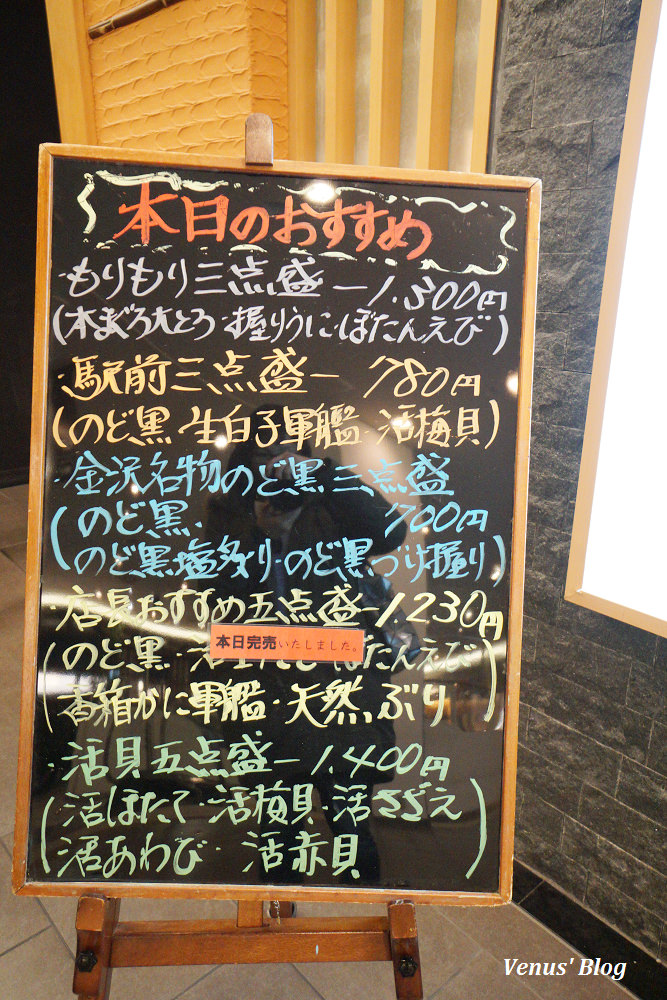 本日のおすすめ
・もりもり三点盛ー1.300円
(本まぐろ大とろ・握りうに・ぼたんえび)
・駅前三点盛ー 780円
(のど黒・生白子軍艦・活梅貝)
・金沢名物のど黒三点盛
(のど黒・ 700円
のど黒塩炙り・のど黒づけ握り)
・店長おすすめ五点盛ー1.230円
本日完売いたしました。
(のど黒・ ぼたんえび
香箱がに軍艦・天然ぶり)
・活貝五点盛ー1.400円
(活ほたて・活梅貝・活さざえ
活あわび・活赤貝)
Venus' Blog